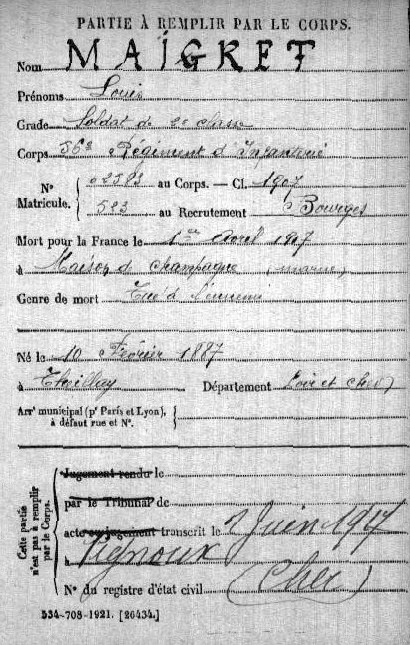 PARTIE À REMPLIR PAR LE CORPS.
Nom MAIGRET
Prénoms Louis
Grade Soldat de 2e classe
Corps 56e Régiment d'Infanterie
N° 02383 au Corps. — Cl. 1907
Matricule. 523 au Recrutement Bourges
Mort pour la France le 1er avril 1917
à Maison d. Champagne (marne)
Genre de mort Tué à l'ennemi
Né le 10 Février 1887
à Theillay Département Loir et Cher
Arr' municipal (p' Paris et Lyon),
à défaut rue et N°.
Cette partie
n'est pas à remplir
par le Corps.
Jugement rendu le
par le Tribunal de
acte ou jugement transcrit le 2 Juin 1917
à Vignoux (Cher)
N° du registre d'état civil
534-708-1921. [26434.]